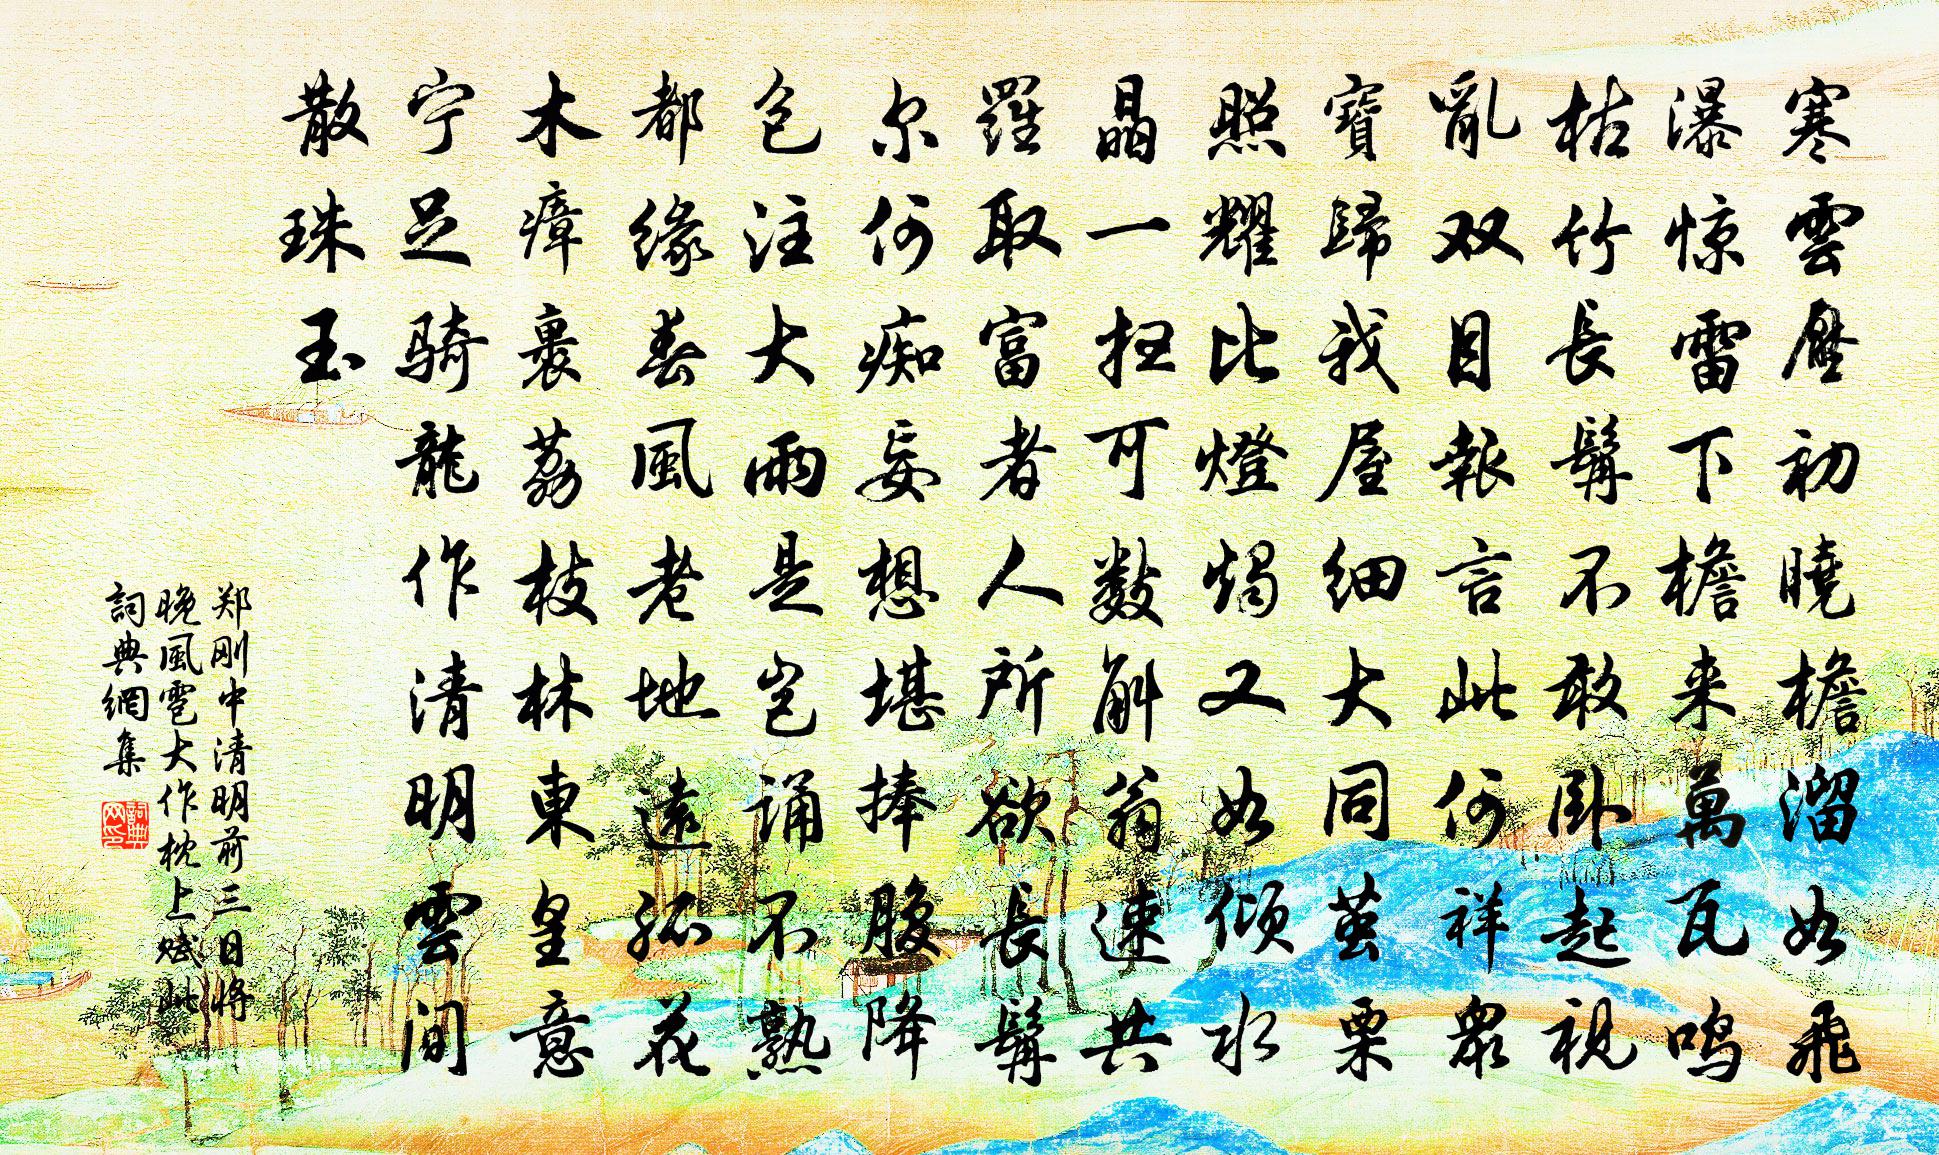 寒雲壓初曉檐溜如飛
瀑惊雷下檐来萬瓦鸣
枯竹長髯不敢卧起視
亂双目報言此何祥眾
寶歸我屋细大同茧栗
照耀比燈燭又如倾水
晶一扫可數斛翁速共
羅取富者人所欲長髯
尔何痴妄想堪捧腹降
包注大雨是岂诵不熟
都緣春風老地遠孤花
木瘴裹荔枝林東皇意
宁足骑龍作清明雲间
散珠玉
郑刚中清明前三日将
晚風雹大作枕上赋此
詞典網集